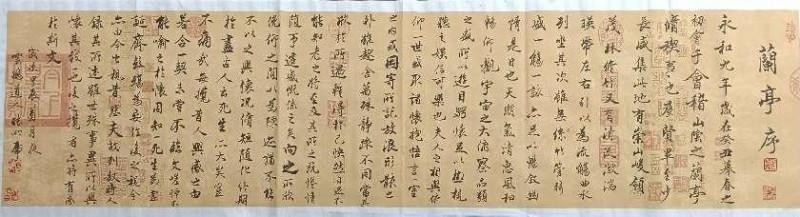 蘭亭序
永和九年歲在癸丑暮春之
初會于會稽山陰之蘭亭
脩禊事也群賢畢至少
長咸集此地有崇山峻領
茂林脩竹又有清流激湍
暎帶左右引以為流觴曲水
列坐其次雖無絲竹管弦之
盛一觴一詠亦足以暢敘幽
情是日也天朗氣清惠風和
暢仰觀宇宙之大俯察品類
之盛所以遊目騁懷足以極視
聽之娛信可樂也夫人之相與俯
仰一世或取諸懷抱悟言一室
之內或因寄所託放浪形骸之
外雖趣舍萬殊靜躁不同當其
欣於所遇暫得於己快然自足不
知老之將至及其所之既惓情
隨事遷感慨係之矣向之所欣
俛仰之間以為陳迹猶不能
不以之興懷況脩短隨化終期
於盡古人云死生亦大矣豈
不痛哉每攬昔人興感之由
若合一契未嘗不臨文嗟悼不
能喻之於懷固知一死生為虛
誕齊彭殤為妄作後之視今
亦由今之視昔悲夫故列敘時人
錄其所述雖世殊事異所以興
懷其致一也後之攬者亦將有感
於斯文
歲次甲辰